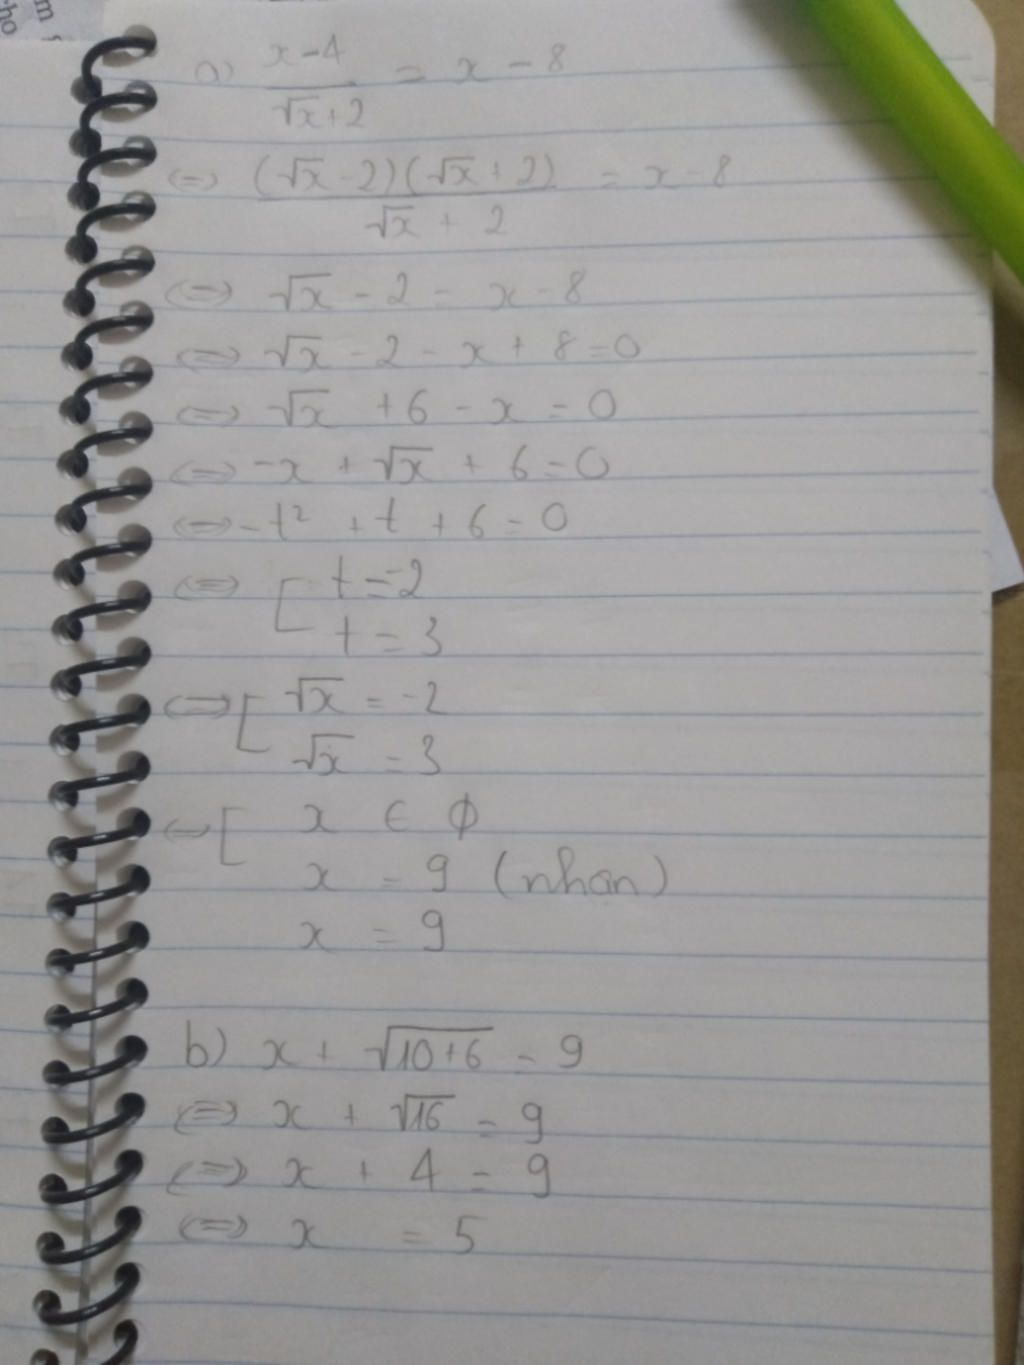 a) \frac{x-4}{\sqrt{x}+2} = x - 8
<=> \frac{(\sqrt{x}-2)(\sqrt{x}+2)}{\sqrt{x}+2} = x-8
<=> \sqrt{x} - 2 = x - 8
<=> \sqrt{x} - 2 - x + 8 = 0
<=> \sqrt{x} + 6 - x = 0
<=> -x + \sqrt{x} + 6 = 0
<=> -t² + t + 6 = 0
<=> [ t = -2
t = 3
<=> [ \sqrt{x} = -2
\sqrt{x} = 3
<=> [ x ∈ ϕ
x = 9 (nhận)
x = 9
b) x + \sqrt{10+6} = 9
<=> x + \sqrt{16} = 9
<=> x + 4 = 9
<=> x = 5